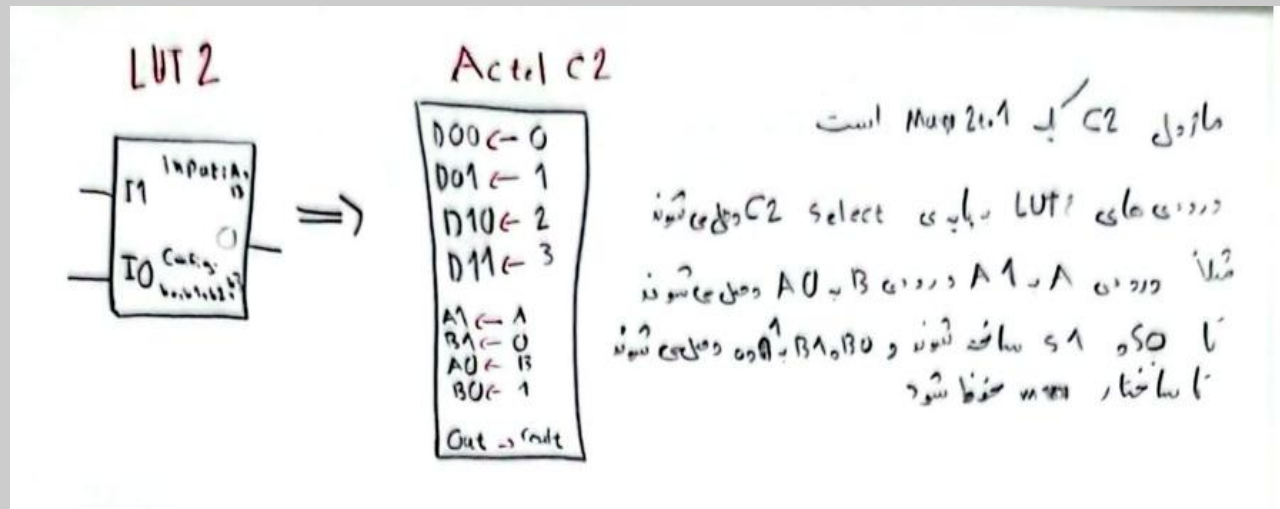 LUT 2
I1
Input: A,
B
I0
O
Config:
b0,b1,b2,b3
Actel C2
D00 ← 0
D01 ← 1
D10 ← 2
D11 ← 3
A1 ← A
B1 ← 0
A0 ← B
B0 ← 1
Out →
ماژول C2 یک Mux 2to1 است
ورودی های LUT2 به پایه ی select C2 وصل می شوند
مثلاً ورودی A به A1 ورودی B به A0 وصل می شوند
تا S0 و S1 ساخته شوند و B0 و B1 به وصل می شوند
تا ساختار mux حفظ شود